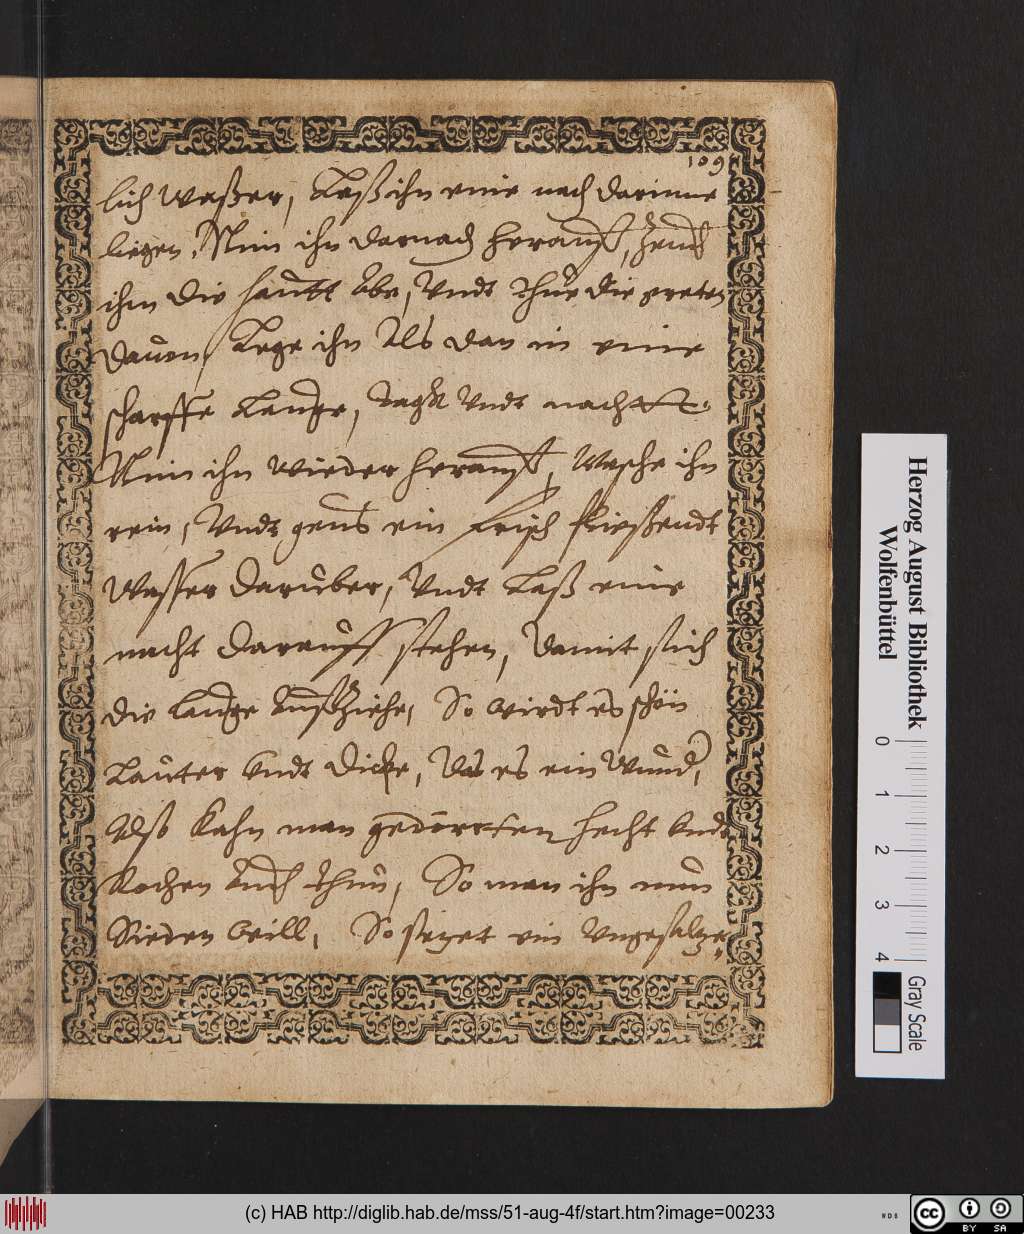 109
lich Waßer, Laß ihn eine nach darinne
liegen, Nim ihn darnach herauß, Zeuch
ihm die hautt Abe, Undt Thue die greten
dauon, Lege ihn Als dan in eine
scharffe Lauge, Tagk Undt nachtt.
Nim ihn wieder herauß, Wasche ihn
rein, Undt geus ein Frisch fliesßendt
Wasser darüber, Undt Laß eine
nacht darauff stehen, damit sich
die Lauge außziehe, So wirdt es schön
Lauter undt dicke, Das es ein Wund,
Also kahn man gedorrten hecht undt
kochen auch thun, So man ihn nun
Sieden will, So setzet ein Ungesaltze„
Herzog August Bibliothek
Wolfenbüttel
0 1 2 3 4
Gray Scale
(c) HAB http://diglib.hab.de/mss/51-aug-4f/start.htm?image=00233
WDB
cc BY SA